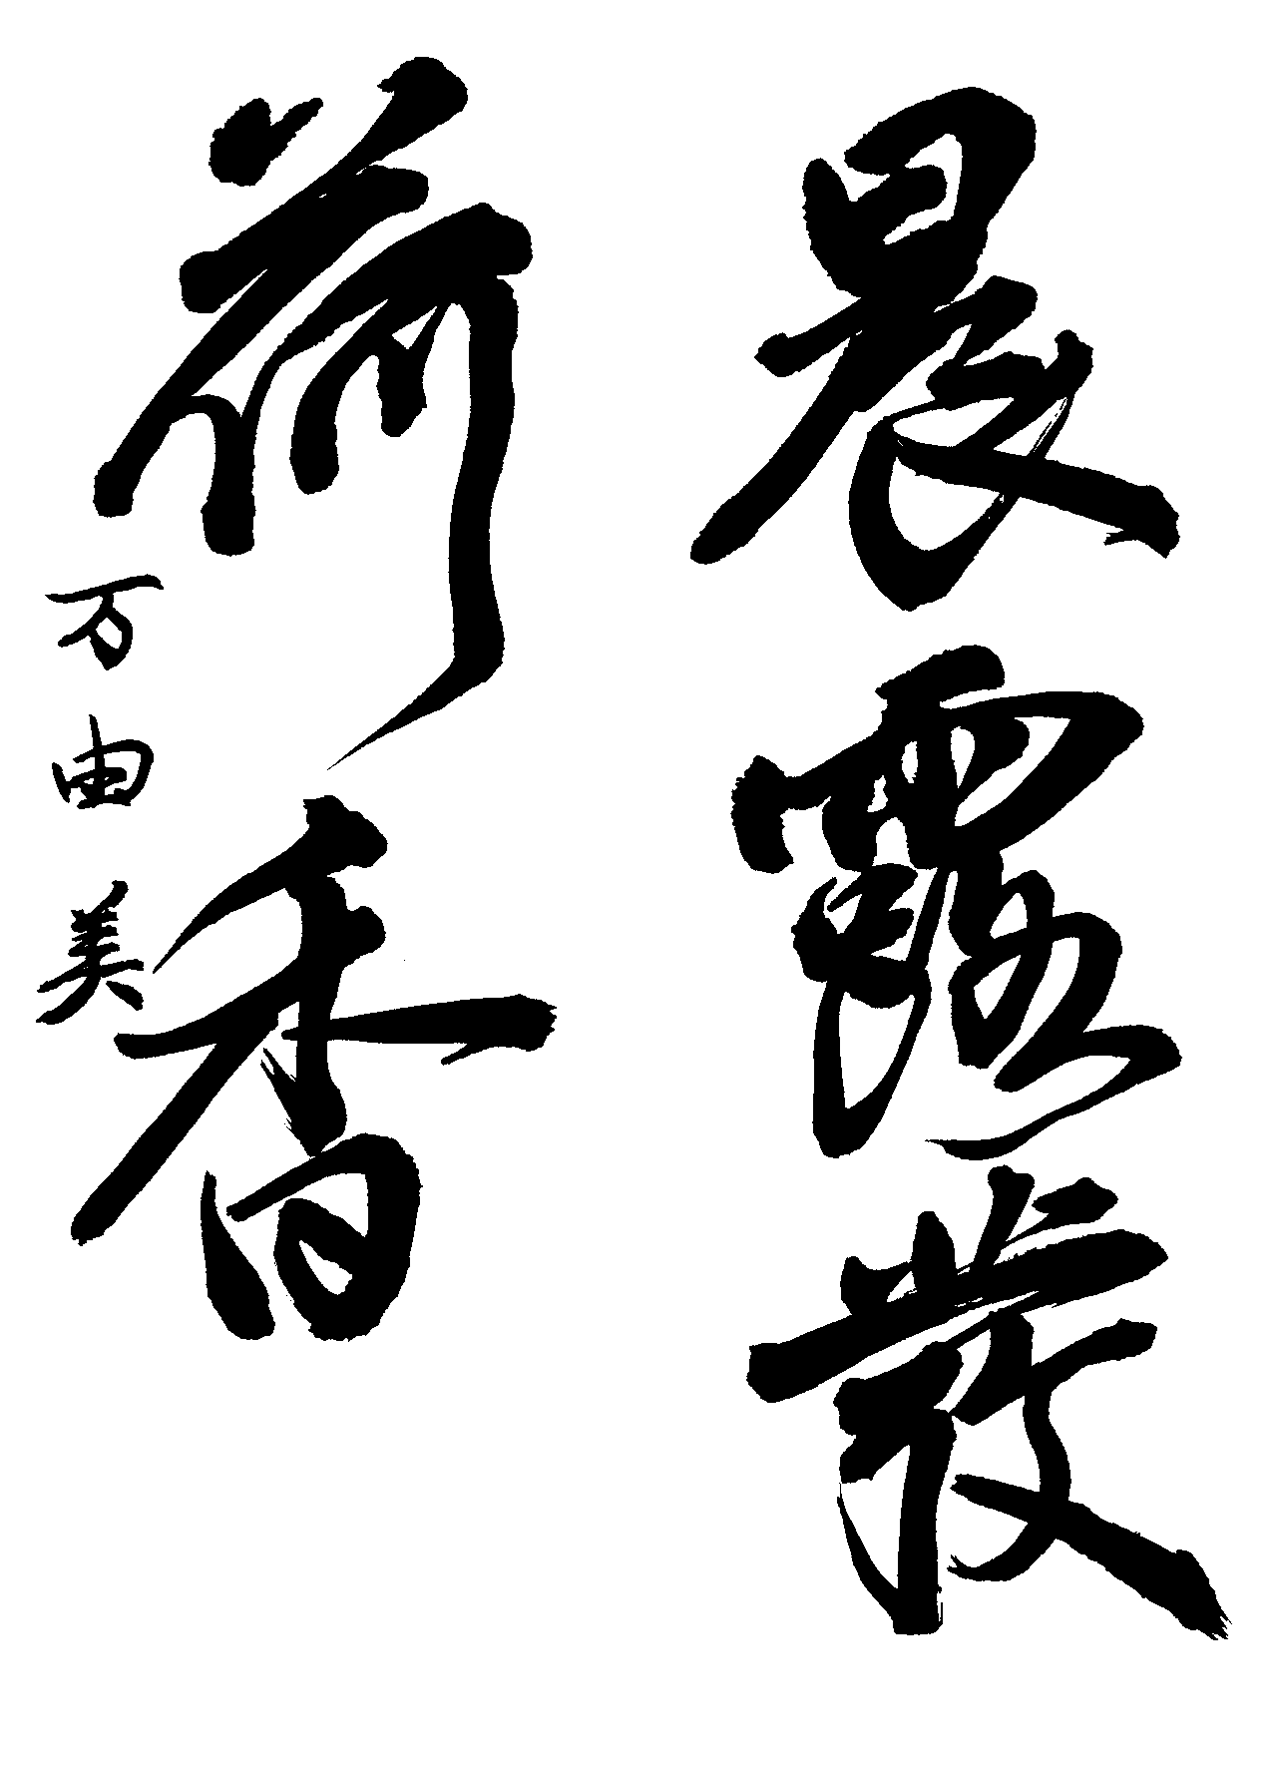 晨露發
荷香
万由美